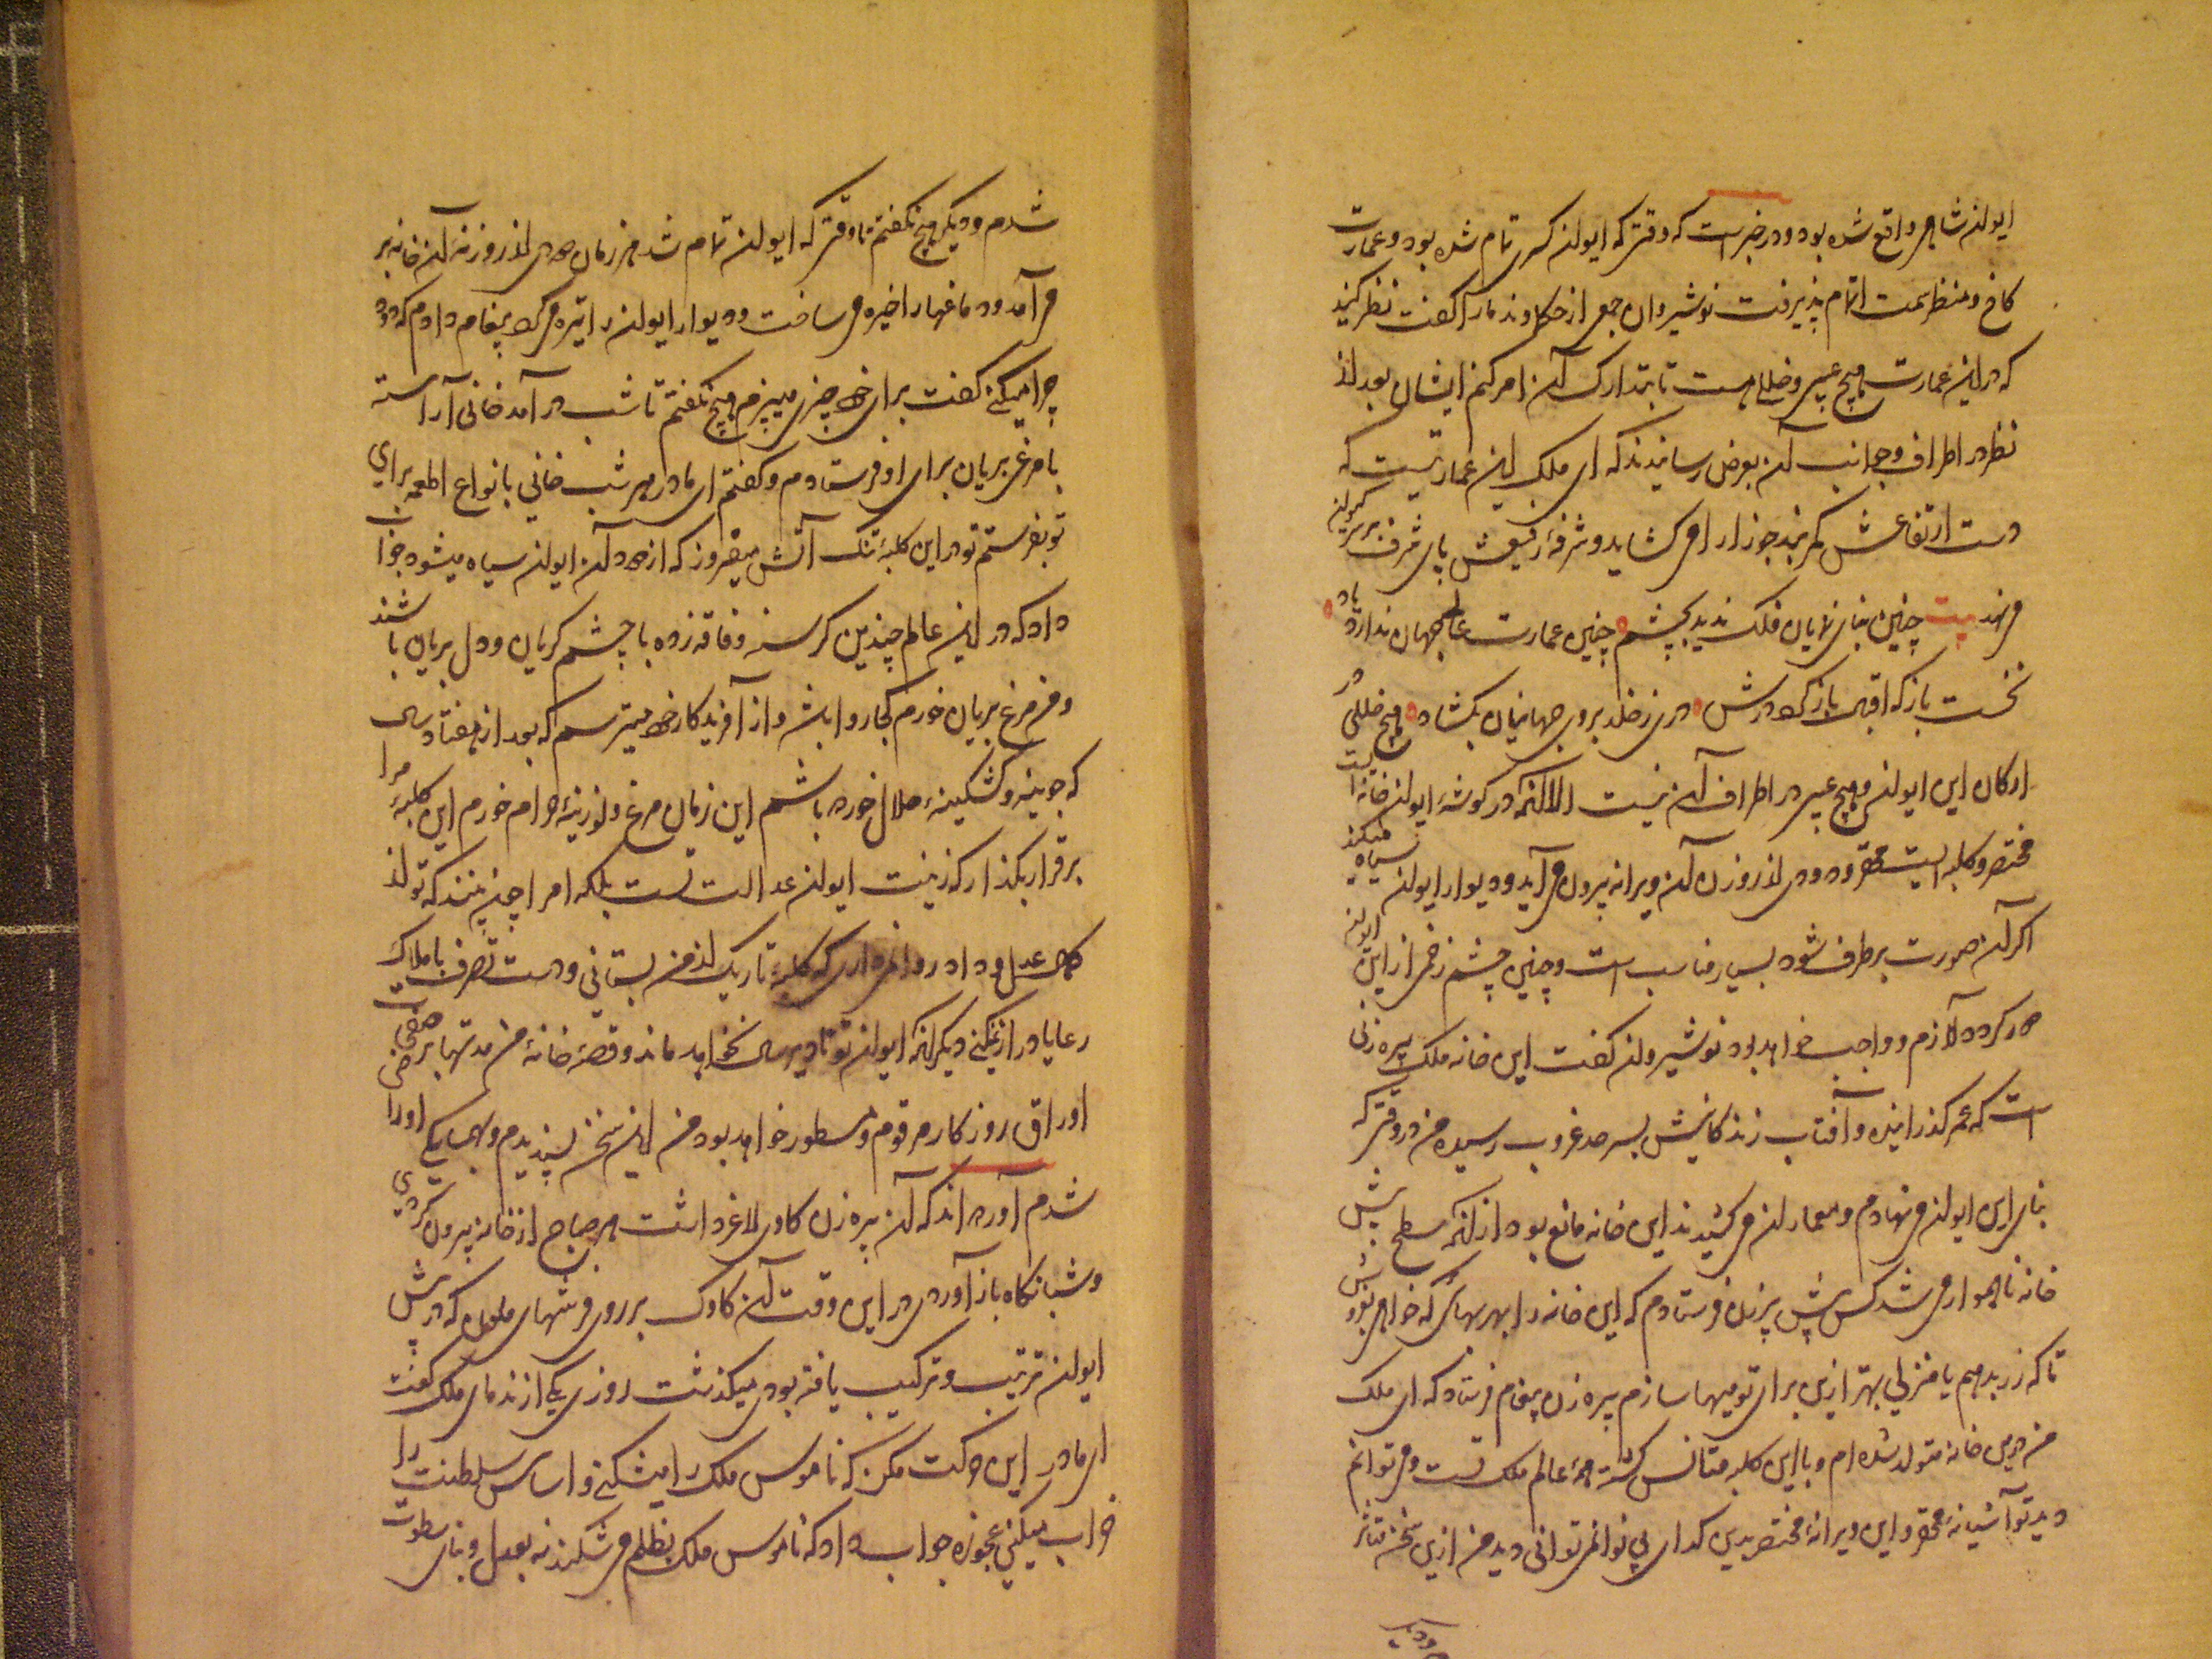 ایوان شاهی واقع شده بود و در خبرست که وقتی که ایوان کسری تمام شده بود و عمارت
کاخ و منظر سمت اتمام پذیرفت نوشیروان جمعی از حکما و ندما را گفت نظر کنید
که در این عمارت هیچ عیبی و خللی هست تا بتدارک آن امر کنم ایشان بعد از
نظر در اطراف و جوانب آن بعرض رسانیدند که ای ملک این عمارتیست که
دست ارتفاعش کمربند جوزا را می کشاید و شرفهٔ رفیعش پای شرف بر سر کیوان
می نهد بیت چنین بنای نمایان فلک ندید بچشم چنین عمارت عالی جهان ندارد یاد
نخست باز که اقبال باز کرد درش دری ز خلد بروی جهانیان بکشاد هیچ خللی در
ارکان این ایوان و هیچ عیبی در اطراف آن نیست الا آنکه در کوشهٔ ایوان خانه ایست
مختصر و کلبه ایست محقر و دودی از روزن آن ویرانه بیرون می آید و دیوار ایوان سیاه میکند
اکر آن صورت برطرف شود بسیار مناسب است و چنین چشم زخمی از این ایوان
دور کردن لازم و واجب خواهد بود نوشیروان کفت این خانه ملک پیره زنی
است که عمر کذرانیده و آفتاب زندکانیش بسرحد غروب رسیده من در وقتی که
بنای این ایوان می نهادم و معماران می کشیدند این خانه مانع بود از آنکه سطح پیش
خانه ناهموار می شد کس پیش پیرزن فرستادم که این خانه را بهر بهای که خواهی بفروش
تا که زر بدهم یا منزلی بهتر ازین برای تو مهیا سازم پیره زن پیغام فرستاد که ای ملک
من درین خانه متولد شده ام و با این کلبه متانس کشته همهٔ عالم ملک تست و می توانم
دید تو آشیانهٔ محقر و این ویرانهٔ مختصر بدین کدای بی نوا نمی توانی دید من ازین سخن متاثر
شدم و دیکر هیچ نکفتم تا وقتی که ایوان تمام شد هر زمان دودی از روزنهٔ آن خانه بر
می آمد و دماغها را خیره می ساخت و دیوار ایوان را تیره می کرد پیغام دادم که دود
چرا میکنی کفت برای خود چیزی میپزم هیچ نکفتم تا شب در آمد خوانی آراسته
با مرغی بریان برای او فرستادم و کفتم ای مادر هر شب خوانی بانواع اطعمه برای
تو بفرستم تو در این کلبهٔ تنک آتش میفروز که از دود آن ایوان سیاه میشود جواب
داد که در این عالم چندین کرسنه و فاقه زده با چشم کریان و دل بریان باشند
و من مرغ بریان خورم کجا روا باشد و از آفریدکار خود میترسم که بعد از هفتاد سال
که جوینه و کشکینهٔ حلال خورده باشم این زمان مرغ و لوزینهٔ حرام خورم این کلبهٔ مرا
برقرار بکذار که زینت ایوان عدالت تست بلکه امرا چنین بینند که تو از
کمال عدل و داد روا نمی داری که کلبهٔ تاریک از من بستانی و دست تصرف باملاک
رعایا دراز نمیکنی دیکر آنکه ایوان تو تا دیرسال نخواهد ماند و قصهٔ خانهٔ من مدتها بر صفحات
اوراق روزکار مرقوم و مسطور خواهد بود من این سخن پسندیدم و بهمسایکی او راضی
شدم آورده اند که آن پیره زن کاوی لاغر داشت هر صباح از خانه بیرون کردی
و شبانکاه باز آوردی در این وقت آن کاوک بر روی فرشهای ملون که در پیش
ایوان ترتیب و ترکیب یافته بودی میکذشت روزی یکی از ندمای ملک کفت
ای مادر این حرکت مکن که ناموس ملک را میشکنی و اساس سلطنت را
خراب میکنی عجوزه جواب داد که ناموس ملک بظلم می شکند نه بعدل و بنای سطوت